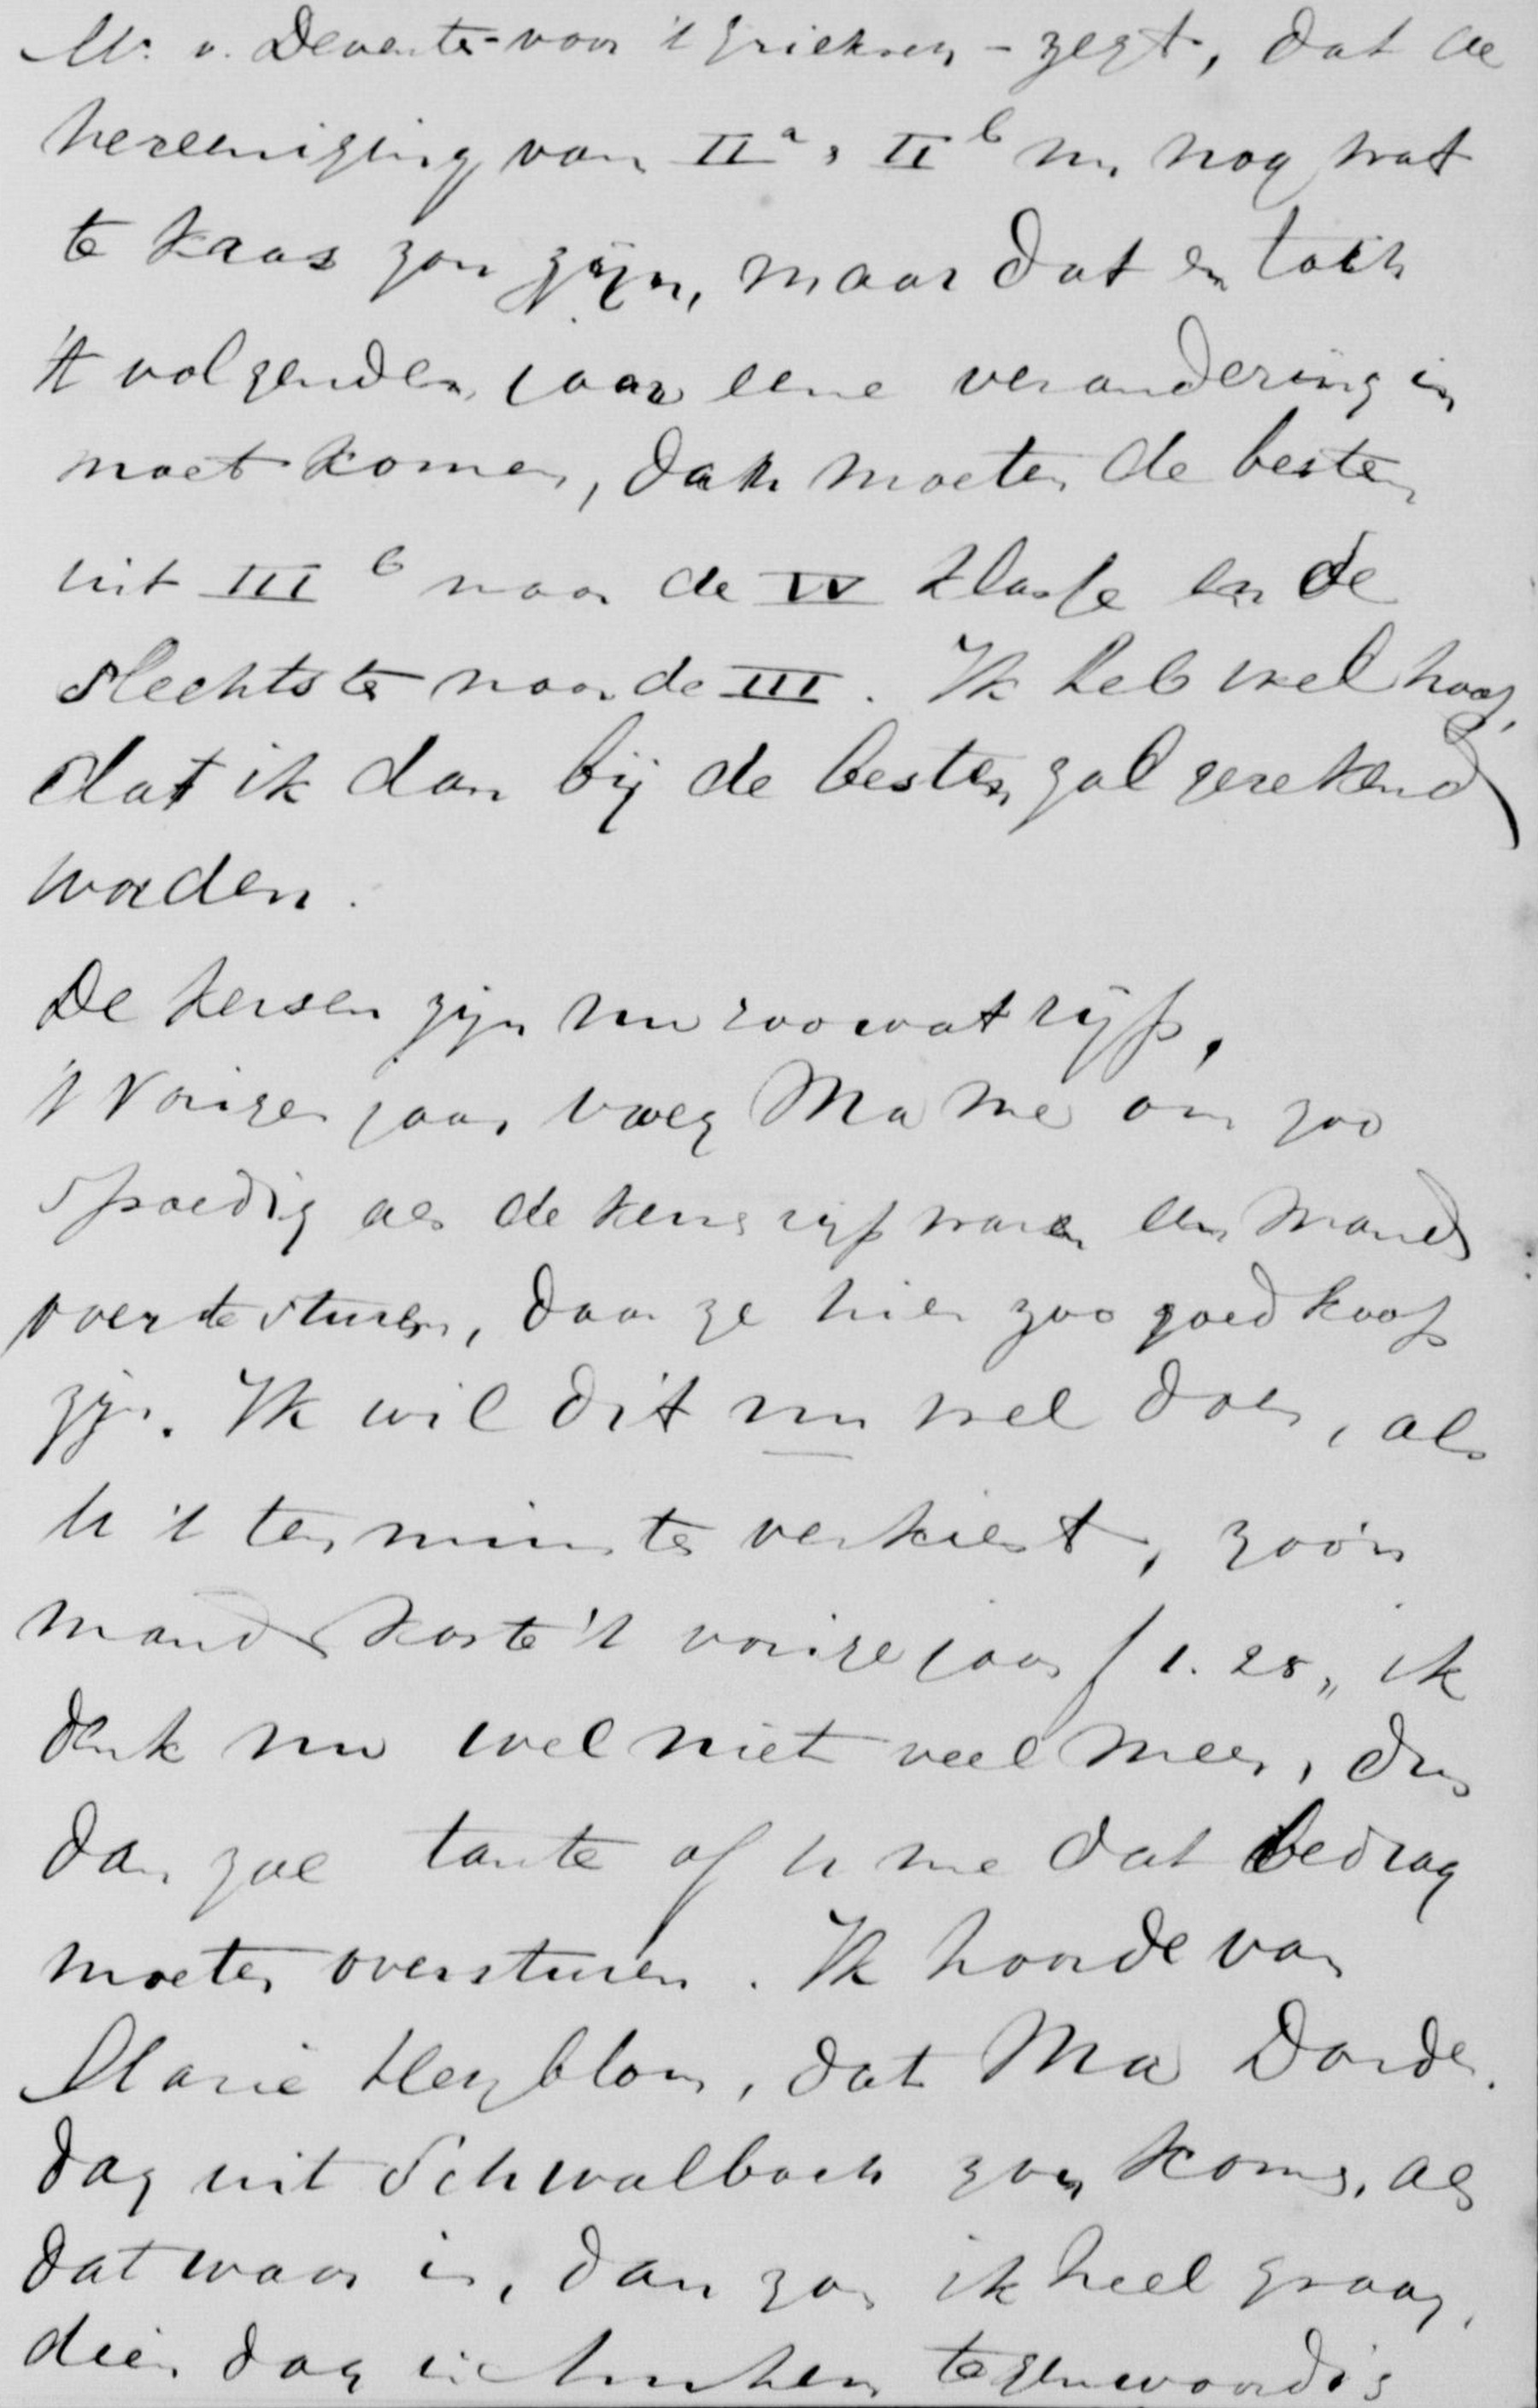 Mr. v. Deventer - voor 't Grieksch - zegt, dat de
vereeniging van II a, II b nu nog wat
te kras zou zijn, maar dat er toch
't volgenden jaar eene verandering in
moet komen, dan moeten de besten
uit III b naar de IV klasse en de
slechtste naar de III. Ik heb wel hoop,
dat ik dan bij de besten zal gerekend
worden.
De kersen zijn nu zoowat rijp,
't Vorigen jaar vroeg Ma me om zoo
spoedig als de kers rijp waren een mand
over te sturen, daar ze hier zoo goedkoop
zijn. Ik wil dit nu wel doen, als
U 't ten minste verkiest, zoo'n
mand koste 't vorige jaar f 1.25,, ik
denk nu wel niet veel meer, dus
dan zal tante of U me dat bedrag
moeten oversturen. Ik hoorde van
Marie Heyblom, dat Ma Donder
dag uit Schwalbach zou komen, als
dat waar is, dan zou ik heel graag
dien dag in tegenwoordig